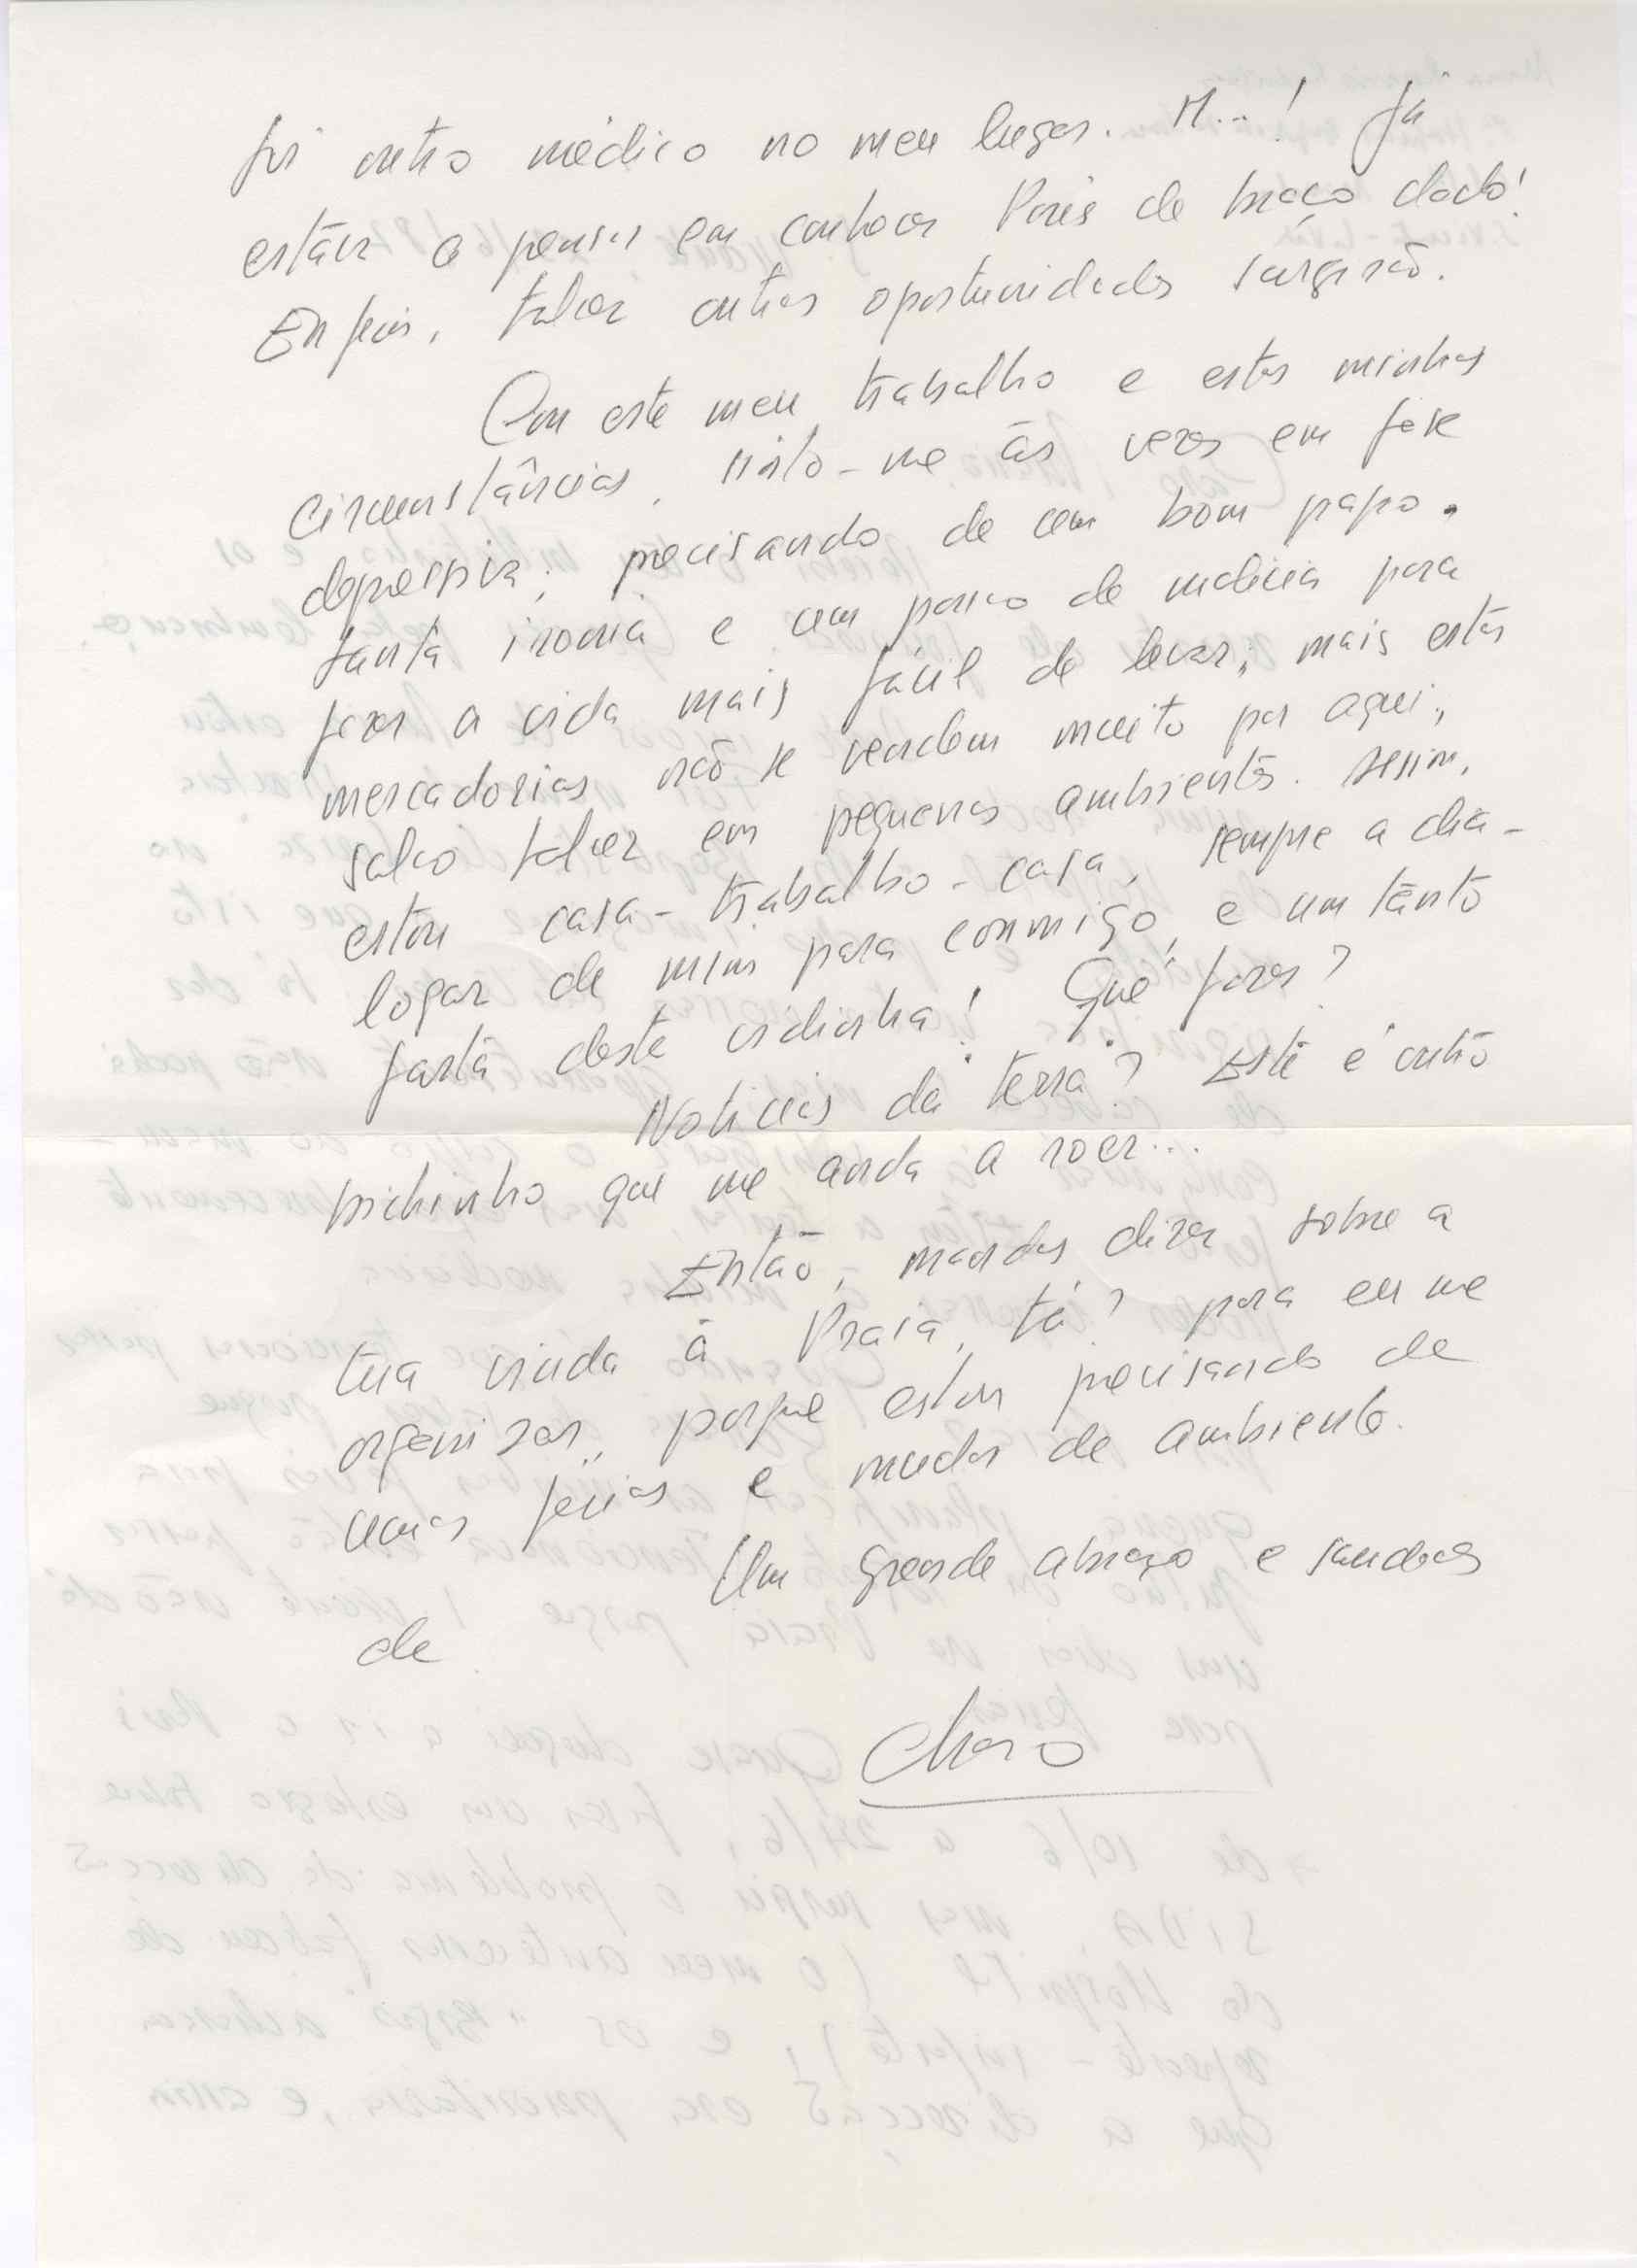 foi outro médico no meu lugar. M...! Já
estava a pensar em conhecer Paris de braço dado!
Enfim, talvez outras oportunidades surgirão.
Com este meu trabalho e estas minhas
circunstâncias, sinto-me às vezes em fase
depressiva; precisando de um bom papo,
tanta ironia e um pouco de malícia para
fazer a vida mais fácil de levar; mais estas
mercadorias não se vendem muito por aqui;
salvo talvez em pequenos ambientes. Assim,
estou casa-trabalho-casa, sempre a dia-
logar de mim para conmigo, e um tanto
farta desta vidinha! Qué fazer?
Noticias da terra? Este é outro
bichinho que me anda a roer...
Então, mandas dizer sobre a
tua vinda à Praia, tá? para eu me
organizar, porque estou precisando de
umas férias e mudar de ambiente.
Um grande abraço e saudades
de
Charo